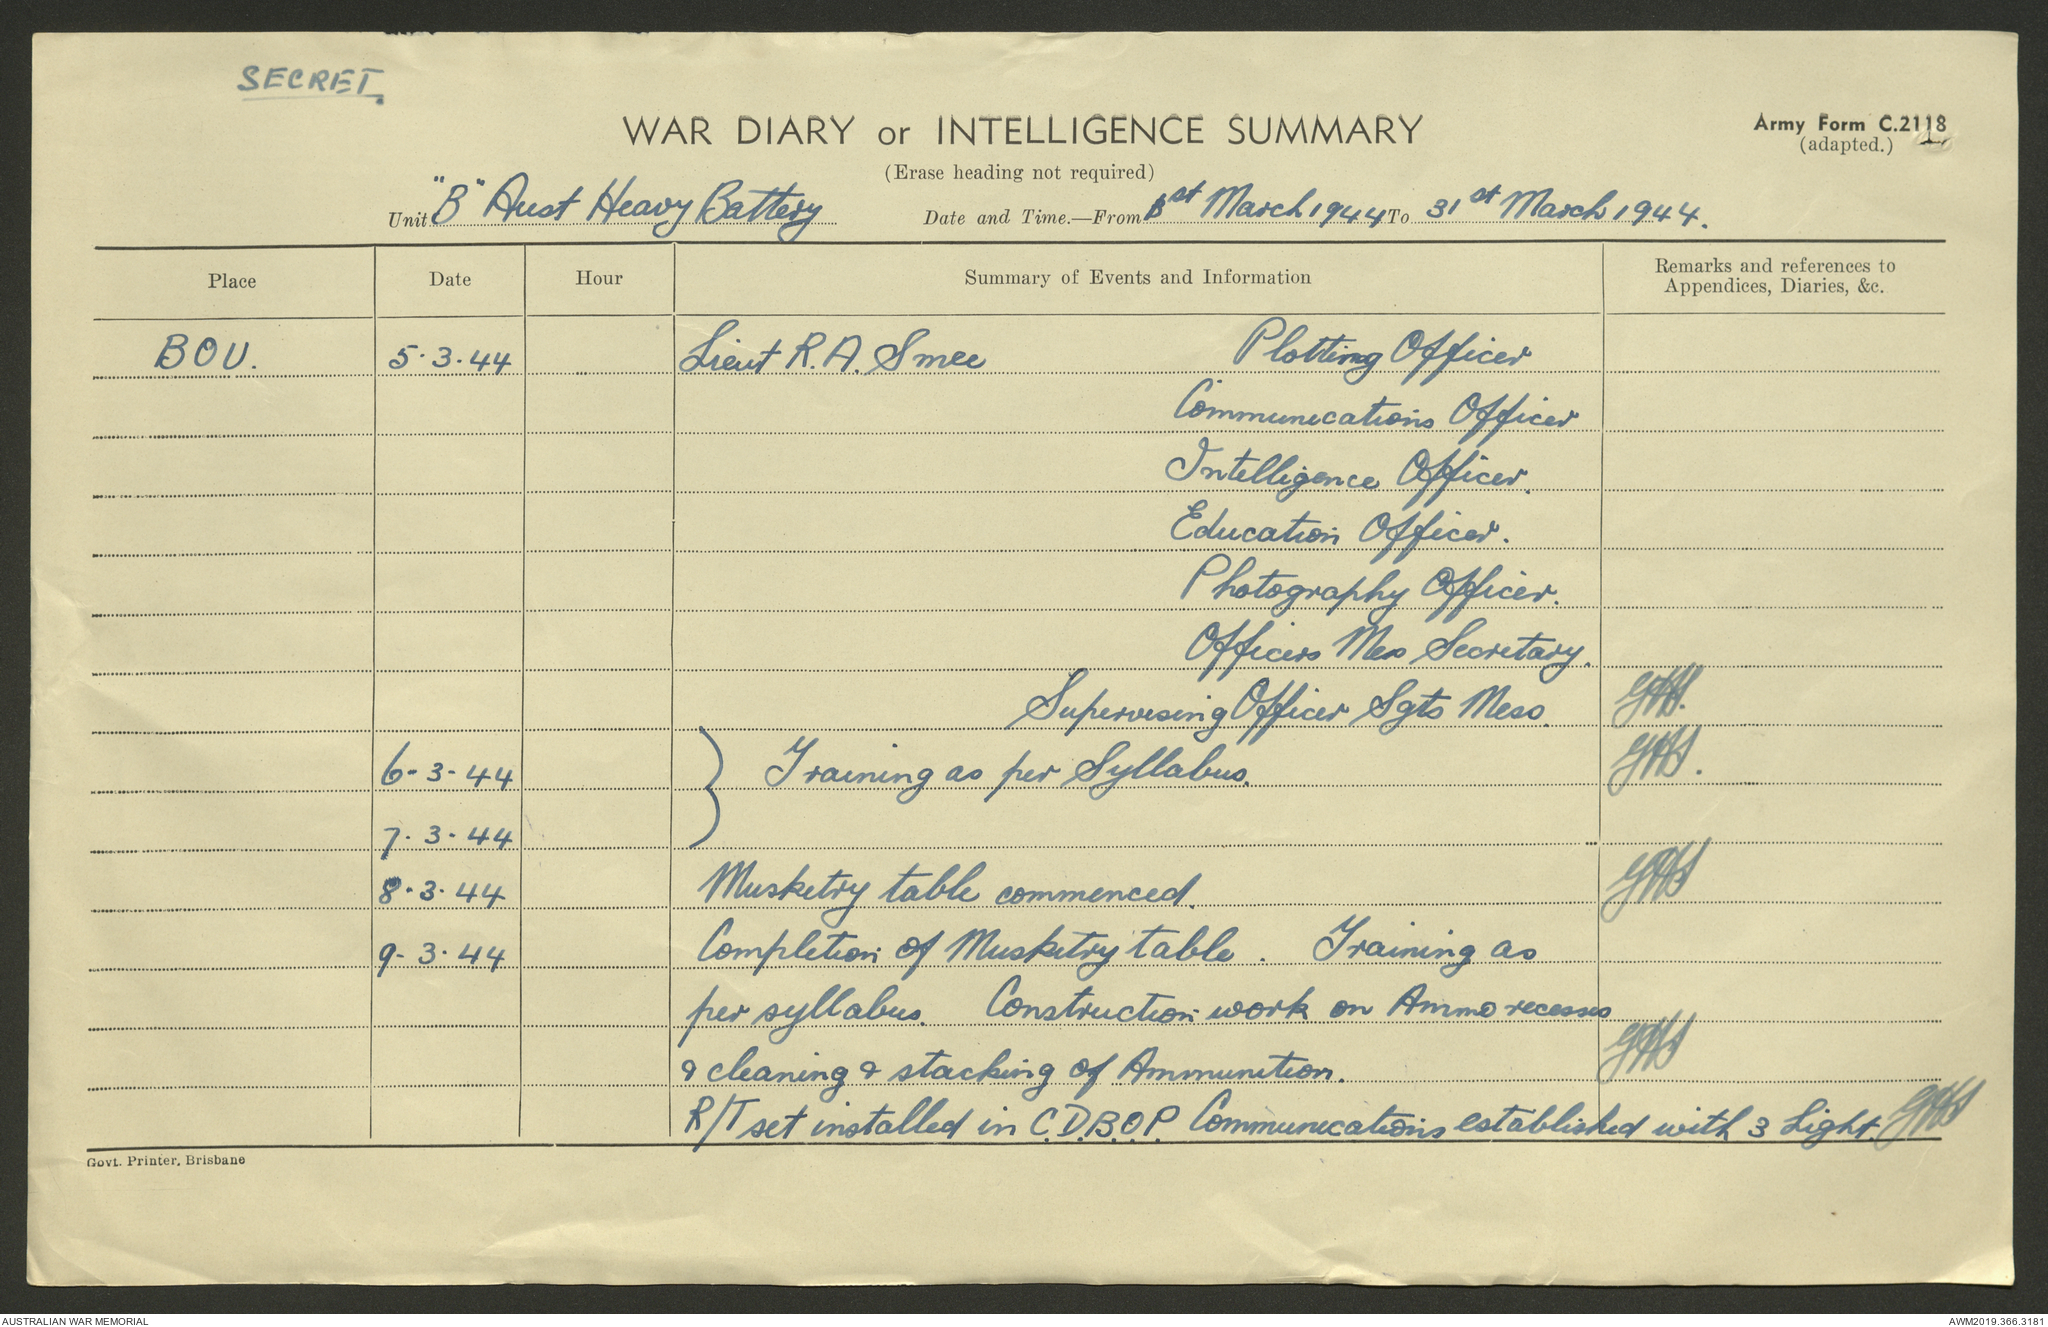 SECRET.
WAR DIARY or INTELLIGENCE SUMMARY
Army Form C.2118
(adapted.)
(Erase heading not required)
Unit "B" Aust Heavy Battery Date and Time.—From 1st March 1944 To 31st March 1944.
Place Date Hour Summary of Events and Information Remarks and references to
Appendices, Diaries, &c.
BOU. 5.3.44 Lieut R.A. Smee Plotting Officer
Communications Officer
Intelligence Officer.
Education Officer.
Photography Officer.
Officers Mess Secretary.
Supervising Officer Sgts Mess.
6-3-44 } Training as per Syllabus.
7.3.44
8.3.44 Musketry table commenced.
9-3.44 Completion of Musketry table. Training as
per syllabus. Construction work on Ammo recesses
& cleaning & stacking of Ammunition.
R/T set installed in C.D.B.O.P. Communications established with 3 Light.
Govt. Printer, Brisbane
AUSTRALIAN WAR MEMORIAL AWM2019.366.3181